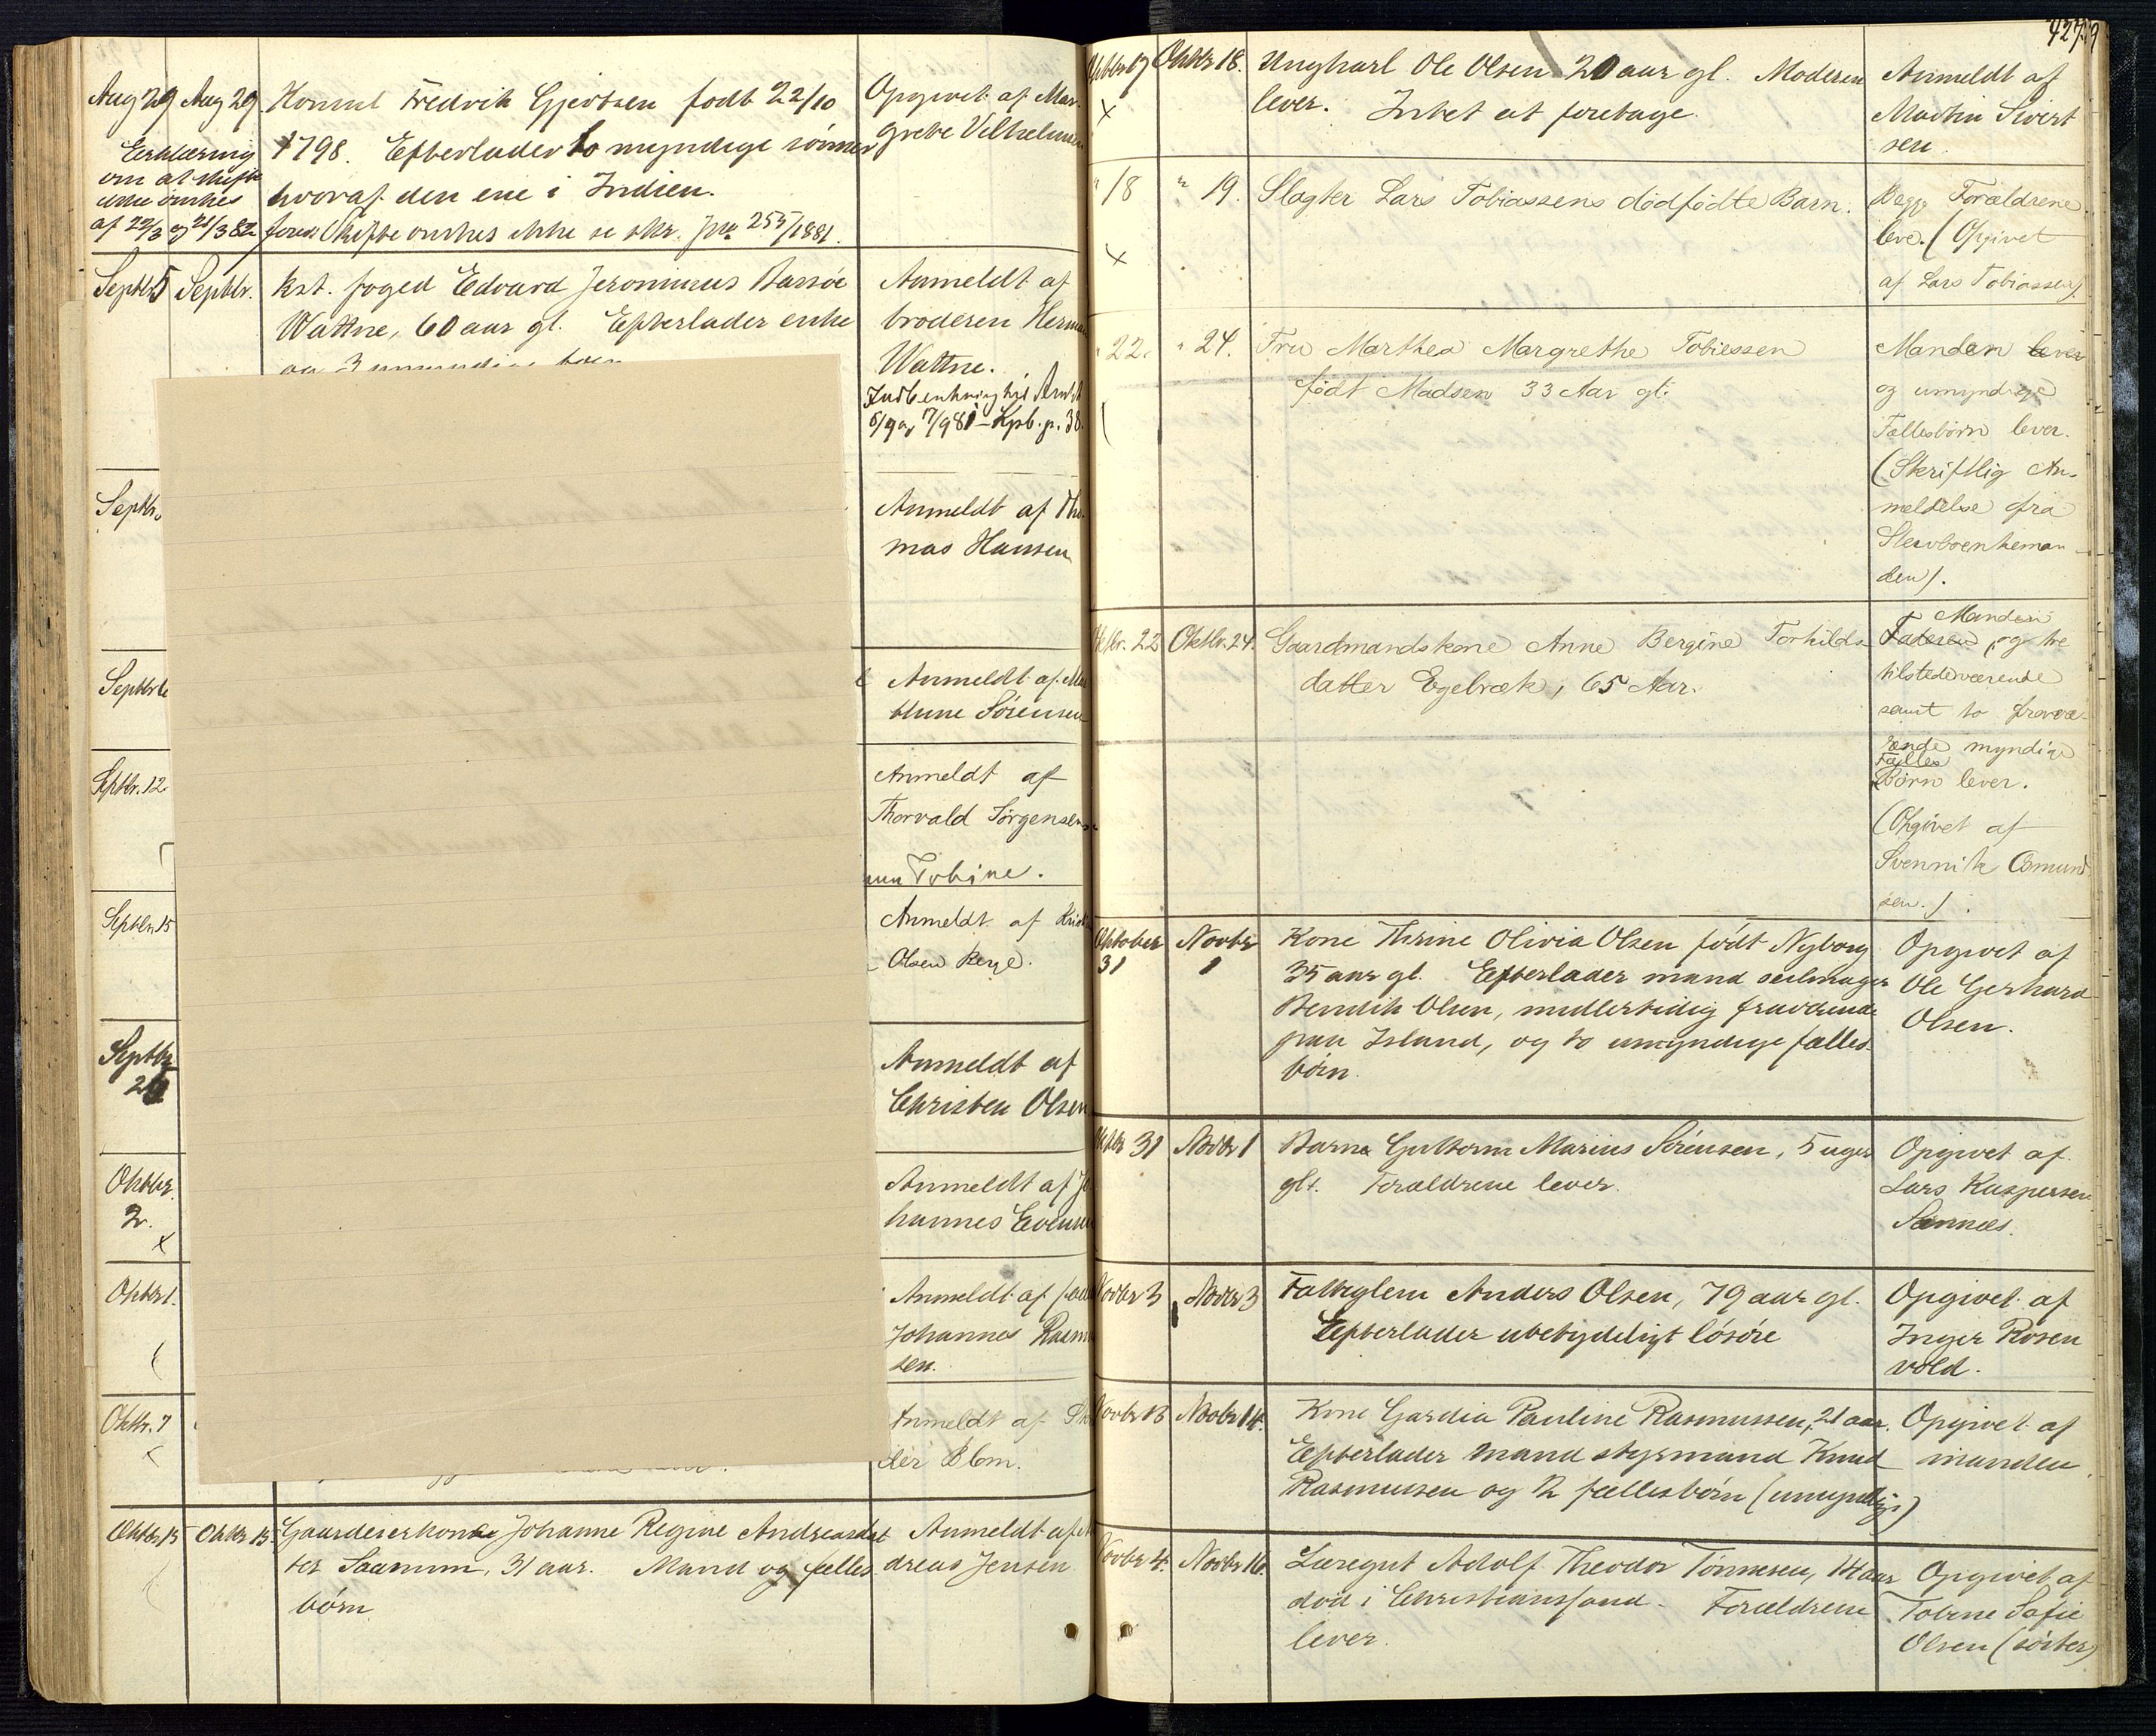 Aug 29 Aug 29. Konsul Fredrik Gjertsen født 22/10 Opgivet af Mar-
Erklæring 1798. Efterlader to myndige sønner grete Vilhelmine
om at skifte
ikke ønskes hvoraf den ene i Indien.
af 22/3 og 21/3 82 Skifte ønskes ikke se skr. jno 255/1881.
Septbr 5 Septbr. kst. foged Edvard Jeronimus Bassøe Anmeldt af
Wattne, 60 aar gl. Efterlader enke broderen Herman
og 3 umyndige børn Wattne.
5/9 og 7/9 81 - Kpb. p. 38.
Septbr. Anmeldt af Tho-
mas Hansen
Septbr Anmeldt af
thine Sørensen
Septbr. 12 Anmeldt af
Thorvald Jørgensen
Tobine.
Septbr. 15 Anmeldt af
Olsen Berge.
Septbr Anmeldt af
Christen Olsen
Oktbr. Anmeldt af Jo
2. hannes Evensen
x
Oktbr 1. Anmeldt af
Johannes Rasmus
sen.
Oktbr. 7 Anmeldt af
x der Blom.
Oktbr 15 Oktbr 15. Gaardeierkone Johanne Regine Andreasdat Anmeldt af An
ter Saanum, 31 aar. Mand og fælles dreas Jensen
børn
427.9
Oktbr 17 Oktbr 18. Ungkarl Ole Olsen 20 aar gl. Moderen Anmeldt af
x lever. Intet at foretage. Martin Sivert
sen.
" 18 " 19. Slagter Lars Tobiassens dødfødte Barn. Begge Forældrene
leve. (Opgivet
x af Lars Tobiassen).
" 22. " 24. Fru Marthea Margrethe Tobiessen Manden lever
født Madsen 33 Aar gl. og umyndige
Fællesbørn lever.
(Skriftlig An-
meldelse fra
Stervboenkeman-
den).
Oktbr. 22 Oktbr. 24. Gaardmandskone Anne Bergine Torkilds- Manden
Faderen, og tre
datter Egebræk, 65 Aar. tilstedeværende
samt to fravæ-
rende myndige
Fælles
Børn lever.
(Opgivet af
Svennik Osmund
sen.).
Oktober Novbr Kone Thrine Olivia Olsen født Nyborg Opgivet af
31 1 35 aar gl. Efterlader mand seilmager Ole Gerhard
Bendik Olsen, midlertidig fraværende Olsen.
paa Island, og to umyndige fælles-
børn.
Oktbr 31 Novbr 1 Barn Guttorm Marius Sørensen, 5 uger Opgivet af
glt. Forældrene lever. Lars Kaspersen
Sannæs.
Novbr 3 Novbr 3 Fattiglem Anders Olsen, 79 aar gl. Opgivet af
Efterlader ubetydeligt løsøre Inger Rosen
vold.
Novbr 13 Novbr 14. Kone Gardia Pauline Rasmussen, 21 aar. Opgivet af
Efterlader mand styrmand Knud manden.
Rasmussen og 2 fællesbørn (umyndige)
Novbr 4. Novbr 16. Læregut Adolf Theodor Tønnesen, 14 aar Opgivet af
død i Christianssand. Forældrene Tobine Sofie
lever. Olsen (søster)